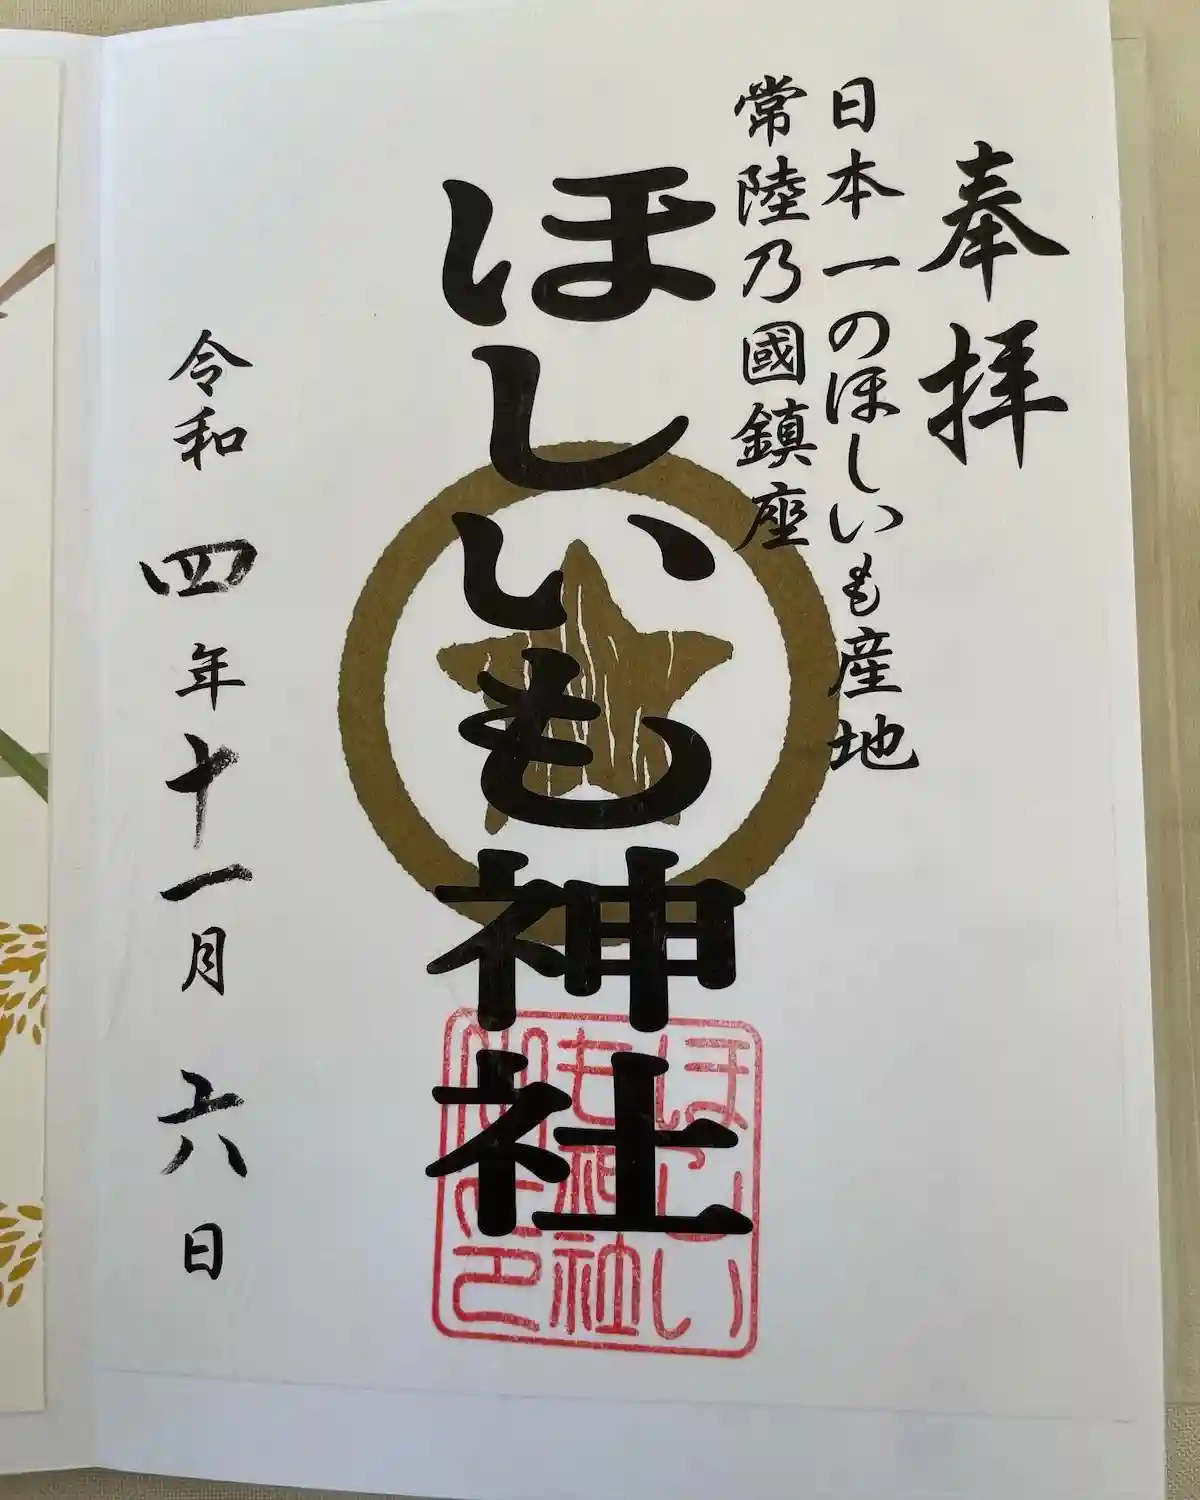 奉拝
日本一のほしいも産地
常陸乃國鎮座
ほしいも神社
令和四年十一月六日
ほしい
も神社